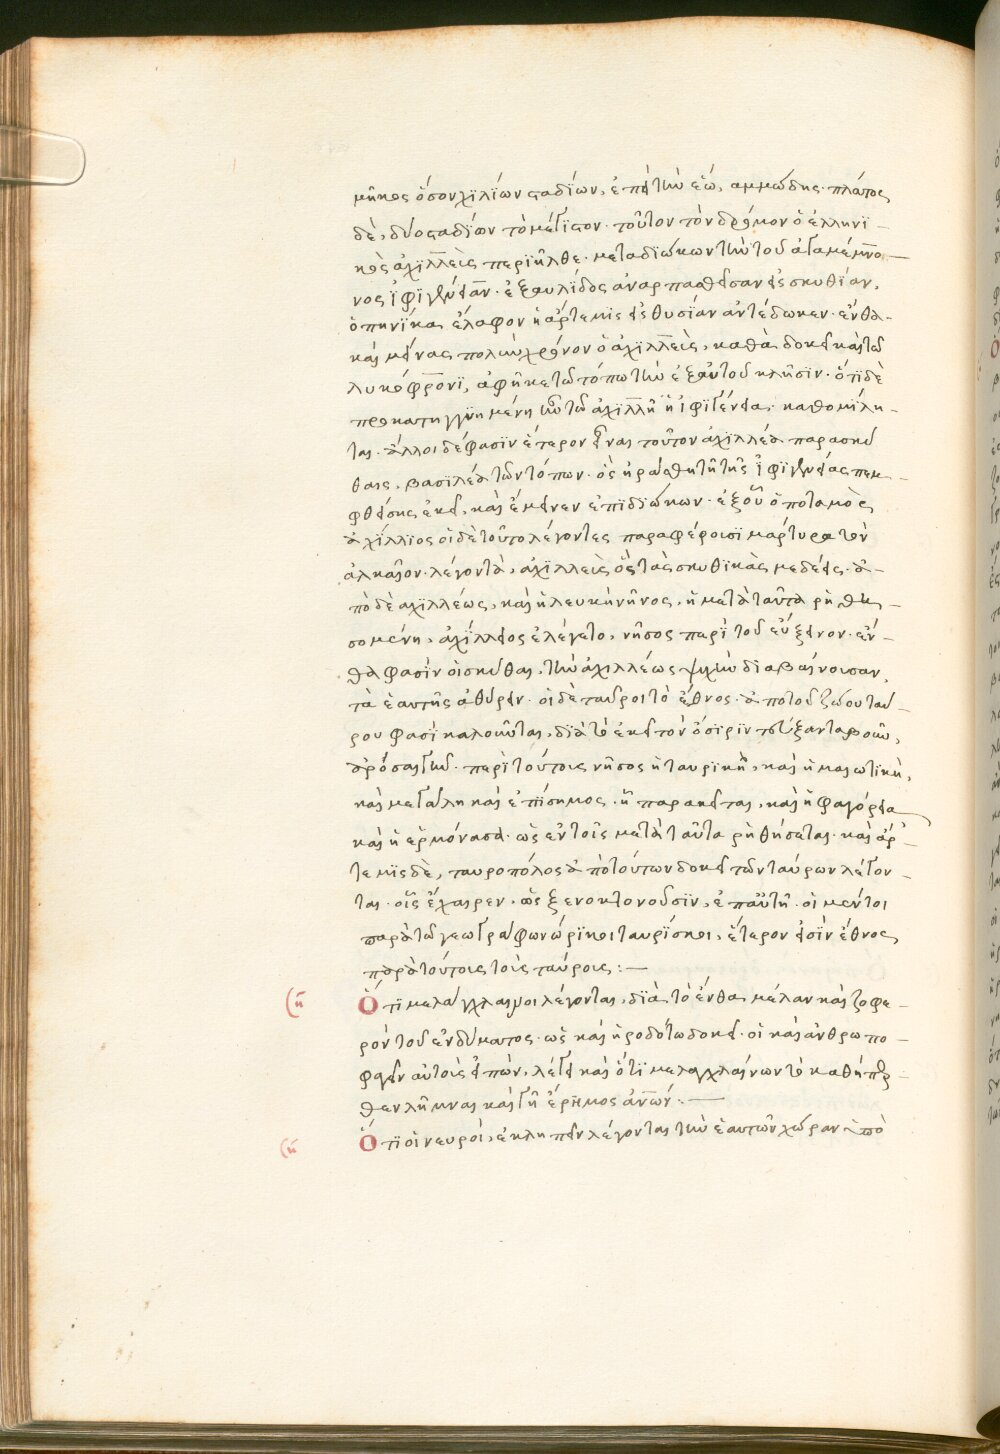 μῆκος ὅσον χιλίων σταδίων, ἐπὶ τὴν ἕω, αμμώδης· πλάτος
δὲ, δύο σταδίων τὸ μέγιστον· τοῦτον τὸν δρόμον ὁ ἑλληνϊ-
κὸς ἀχιλλεὺς περιῆλθε· μεταδιώκων τὴν τοῦ ἀγαμέμνο-
νος ἰφιγένειαν· ἐξ αυλίδος αναρπασθεῖσαν εἰς σκυθίαν,
ὁπηνίκα ἔλαφον ἡ άρτεμις εἰς θυσίαν αντέδωκεν· ἔνθα
καὶ μείνας πολὺν χρόνον ὁ ἀχιλλεὺς, καθὰ δοκεῖ καὶ τῶ
λυκόφρονϊ, ἀφῆκε τῶ τόπω τὴν ἐξ αὐτοῦ κλῆσϊν· ὅτϊ δὲ
προκατηγγυημένη ἦν τῶ ἀχιλλῆ ἡ ἰφϊγένεια, καθομίλη-
ται· ἄλλοι δέ φασὶν ἕτερον εἶναι τοῦτον ἀχιλλέα παρα σκύ
θαις, βασιλέα τῶν τόπων· ὃς ἠράσθη τῆς ἰφϊγενείας πεμ-
φθείσης ἐκεῖ, καὶ ἔμεινεν ἐπϊδϊώκων· ἐξ οὗ ὁ ποταμὸς
ἀχίλλϊος οἱ δὲ τοῦτο λέγοντες παραφέρουσϊ μάρτυρα τὸν
ἀλκαῖον λέγοντα, ἀχϊλλεὺς ὃς τὰς σκυθϊκὰς μεδέεις· ἀ-
πὸ δὲ αχιλλέως, καὶ ἡ λευκὴ νῆσος, ἡ μετὰ ταῦτα ρηθη-
σομένη, ἀχίλλειος ἐλέγετο, νῆσος περὶ τοῦ εὔξεινον· ἔν-
θα φασὶν οἱ σκύθαι, τὴν ἀχιλλέως ψυχὴν διαβαίνουσαν,
τὰ ἑαυτῆς ἀθύρειν· οἱ δὲ ταῦροι τὸ ἔθνος· ἀπὸ τοῦ ζώου ταύ-
ρου φασὶ καλοῦνται, δϊὰ τὸ ἐκεῖ τὸν όσϊρϊν ζεύξαντα βοῦν,
ἀρόσαι γῆν· περὶ τούτοις νῆσος ἡ ταυρϊκὴ, καὶ ἡ μαιωτϊκὴ,
καὶ μεγάλη καὶ ἐπίσημος· ἧ παρακεῖται, καὶ ἡ φαγόρεια
καὶ ἡ ἑρμόνασα· ὡς ἐν τοῖς μετὰ ταῦτα ρηθήσεται· καὶ ἄρ-
τεμϊς δὲ, ταυροπόλος ἀπὸ τούτων δοκεῖ τῶν ταύρων λέγον-
ται· οἷς ἔχαιρεν· ὡς ξενοκτονοῦσϊν, ἐπ' αὐτῆ· οἱ μέντοι
παρὰ τῶ γεωγράφων ώρϊκοι ταυρίσκοι, ἕτερον εἰσϊν ἔθνος
παρὰ τούτοις τοῖς ταύροις:—
Ὅτι μελάγχλαινοι λέγονται, δϊὰ τὸ ἔνθα μέλαν καὶ ζοφε-
ρὸν τοῦ ἐνδύματος· ὡς καὶ ἡροδότω δοκεῖ· οἱ καὶ ἀνθρωπο-
φαγεῖν αὐτοὺς εἰπὼν, λέγει καὶ ὅτϊ μελαγχλαίνων τὸ καθύπερ-
θεν λῆμναι καὶ γῆ ἔρημος ἀνῶν:—
Ὅτϊ οἱ νευροὶ, ἐκληπεῖν λέγονται τὴν ἑαυτῶν χώραν ὑπὸ